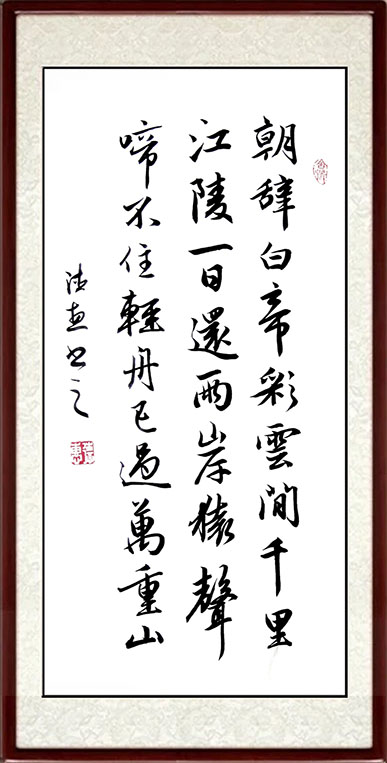 朝辞白帝彩雲間千里
江陵一日還兩岸猿聲
啼不住輕舟已過萬重山
惠書之